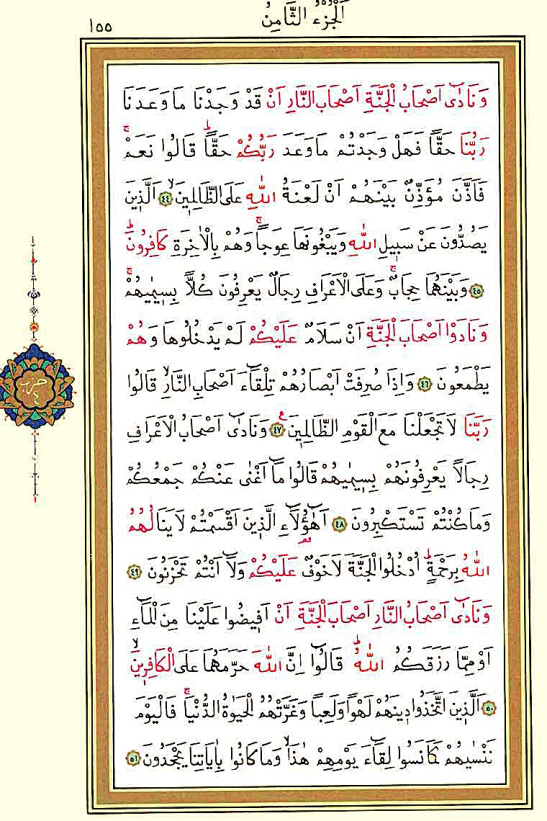 اَلْجُزْءُ الثَّامِنُ
١٥٥
وَنَادٰٓى اَصْحَابُ الْجَنَّةِ اَصْحَابَ النَّارِ اَنْ قَدْ وَجَدْنَا مَا وَعَدَنَا
رَبُّنَا حَقًّا فَهَلْ وَجَدْتُمْ مَا وَعَدَ رَبُّكُمْ حَقًّاۜ قَالُوا نَعَمْۚ
فَاَذَّنَ مُؤَذِّنٌ بَيْنَهُمْ اَنْ لَعْنَةُ اللّٰهِ عَلَى الظَّالِمٖينَۙ ٤٤ اَلَّذٖينَ
يَصُدُّونَ عَنْ سَبٖيلِ اللّٰهِ وَيَبْغُونَهَا عِوَجًاۚ وَهُمْ بِالْاٰخِرَةِ كَافِرُونَۜ
٤٥ وَبَيْنَهُمَا حِجَابٌۚ وَعَلَى الْاَعْرَافِ رِجَالٌ يَعْرِفُونَ كُلًّا بِسٖيمٰيهُمْۚ
وَنَادَوْا اَصْحَابَ الْجَنَّةِ اَنْ سَلَامٌ عَلَيْكُمْ لَمْ يَدْخُلُوهَا وَهُمْ
يَطْمَعُونَ ٤٦ وَاِذَا صُرِفَتْ اَبْصَارُهُمْ تِلْقَٓاءَ اَصْحَابِ النَّارِۙ قَالُوا
رَبَّنَا لَا تَجْعَلْنَا مَعَ الْقَوْمِ الظَّالِمٖينَ ٤٧ وَنَادٰٓى اَصْحَابُ الْاَعْرَافِ
رِجَالًا يَعْرِفُونَهُمْ بِسٖيمٰيهُمْ قَالُوا مَٓا اَغْنٰى عَنْكُمْ جَمْعُكُمْ
وَمَا كُنْتُمْ تَسْتَكْبِرُونَ ٤٨ اَهٰٓؤُ۬لَٓاءِ الَّذٖينَ اَقْسَمْتُمْ لَا يَنَالُهُمُ
اللّٰهُ بِرَحْمَةٍۜ اُدْخُلُوا الْجَنَّةَ لَا خَوْفٌ عَلَيْكُمْ وَلَٓا اَنْتُمْ تَحْزَنُونَ ٤٩
وَنَادٰٓى اَصْحَابُ النَّارِ اَصْحَابَ الْجَنَّةِ اَنْ اَفٖيضُوا عَلَيْنَا مِنَ الْمَٓاءِ
اَوْ مِمَّا رَزَقَكُمُ اللّٰهُۜ قَالُٓوا اِنَّ اللّٰهَ حَرَّمَهُمَا عَلَى الْكَافِرٖينَۙ
٥٠ اَلَّذٖينَ اتَّخَذُوا دٖينَهُمْ لَهْوًا وَلَعِبًا وَغَرَّتْهُمُ الْحَيٰوةُ الدُّنْيَاۚ فَالْيَوْمَ
نَنْسٰيهُمْ كَمَا نَسُوا لِقَٓاءَ يَوْمِهِمْ هٰذَاۙ وَمَا كَانُوا بِاٰيَاتِنَا يَجْحَدُونَ ٥١
حزب
٤